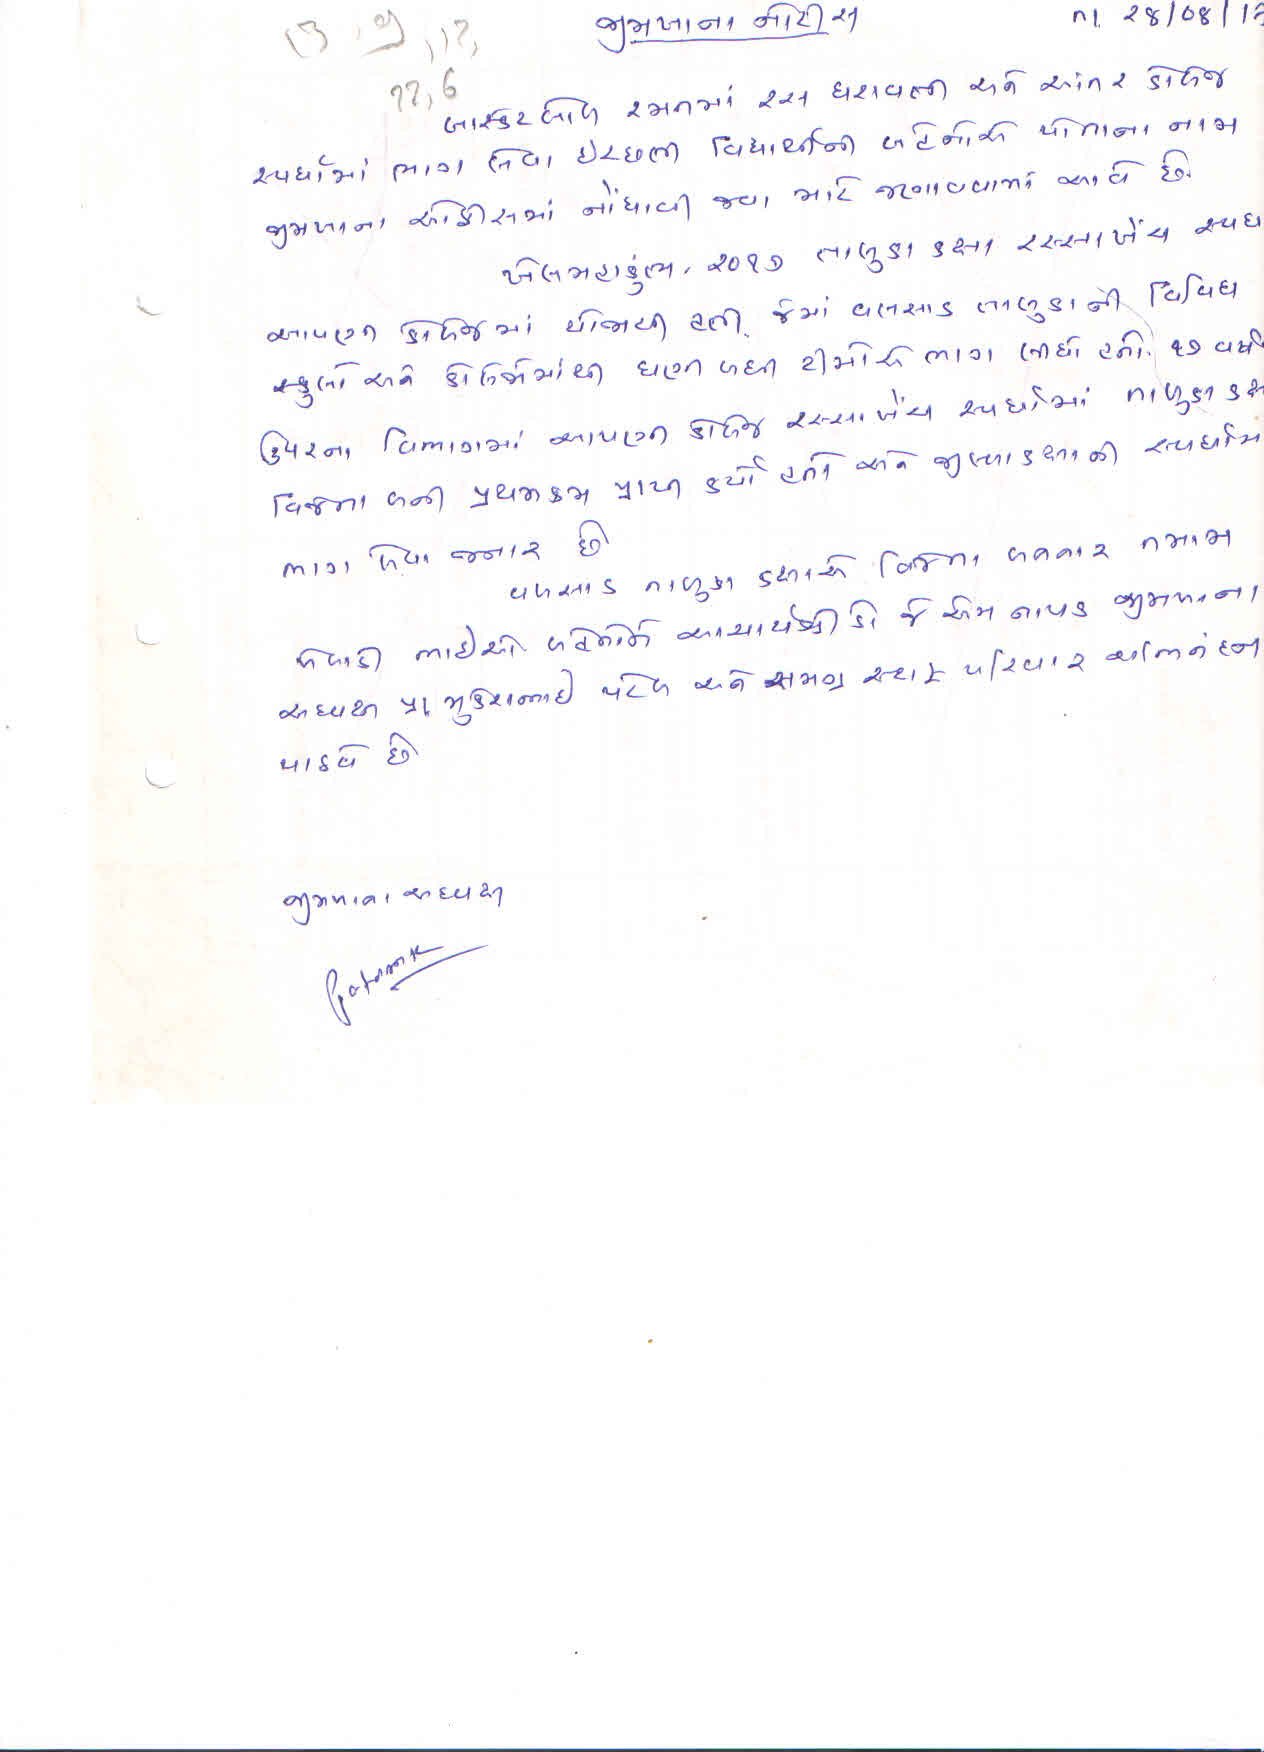 જીમખાના નોટીસ
તા. ૨૪/૦૮/૧૭
૧૧, 6
બાસ્કેટબોલ રમતમાં રસ ધરાવતી અને આંતર કોલેજ
સ્પર્ધામાં ભાગ લેવા ઈચ્છતી વિદ્યાર્થીની બહેનોએ પોતાના નામ
જીમખાના ઓફીસમાં નોંધાવી જવા માટે જણાવવામાં આવે છે.
ખેલમહાકુંભ. ૨૦૧૭ તાલુકા કક્ષા રસ્સાખેંચ સ્પર્ધા
આપણી કોલેજમાં યોજાયી હતી. જેમાં વલસાડ તાલુકાની વિવિધ
સ્કુલો અને કોલેજોમાંથી ઘણી બધી ટીમોએ ભાગ લીધો હતો. ૧૭ વર્ષ
ઉપરના વિભાગમાં આપણી કોલેજ રસ્સાખેંચ સ્પર્ધામાં તાલુકા કક્ષા
વિજેતા બની પ્રથમક્રમ પ્રાપ્ત કર્યો હતો અને જીલ્લાકક્ષાની સ્પર્ધામાં
ભાગ લેવા જનાર છે
વલસાડ તાલુકા કક્ષાએ વિજેતા બનનાર તમામ
ખેલાડી ભાઈઓ બહેનોને આચાર્યશ્રી ડો જે એમ નાયક જીમખાના
અધ્યક્ષ પ્રા. મુકેશભાઈ પટેલ અને સમગ્ર સ્ટાફ પરિવાર અભિનંદન
પાઠવે છે
જીમખાના અધ્યક્ષ